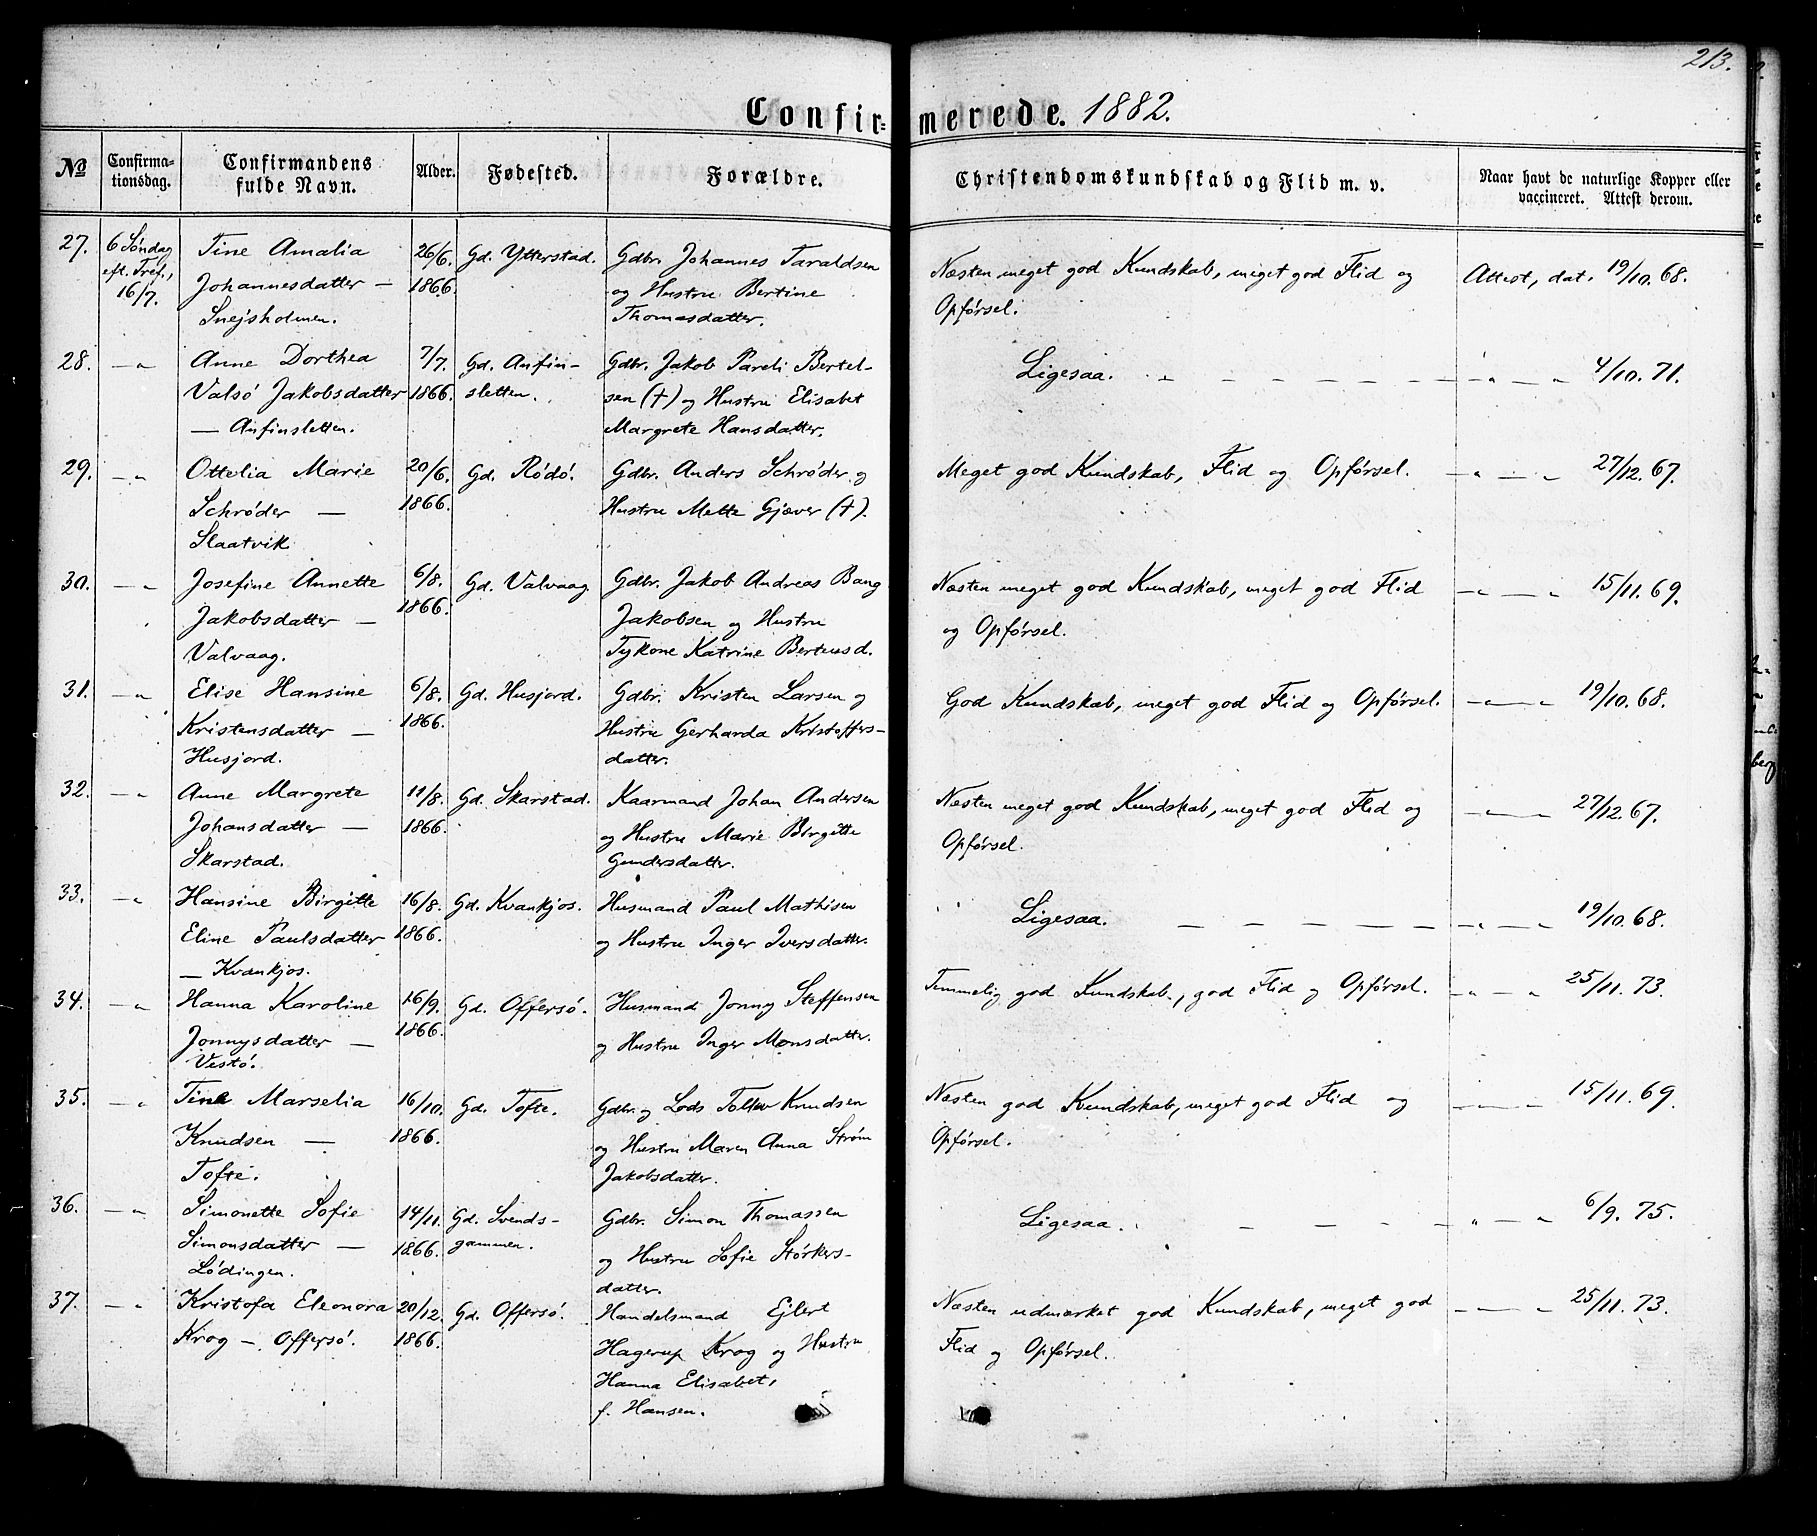 213.
Confirmerede. 1882.
№ Confirmationsdag. Confirmandens fulde Navn. Alder. Fødested. Forældre. Christendomskundskab og Flid m. v. Naar havt de naturlige Kopper eller vaccineret. Attest derom.
27. 6 Søndag Tine Amalia 26/6. Gd. Ytterstad. Gdbr. Johannes Taraldsen Næsten meget god Kundskab, meget god Flid og Attest, dat. 19/10. 68.
eft. Tref., Johannesdatter — 1866. og Hustru Bertine Opførsel.
16/7. Snejsholmen. Thomasdatter.
28. — „ Anne Dorthea 7/7. Gd. Anfin- Gdbr. Jakob Pareli Bertel- Ligesaa. „ — — — — — — — „ — „ 4/10. 71.
Valsø Jakobsdatter 1866. sletten. sen (†) og Hustru Elisabet
— Anfinsletten. Margrete Hansdatter.
29. — „ Ottelia Marie 20/6. Gd. Rödö. Gdbr. Anders Schrøder og Meget god Kundskab, Flid og Opførsel. — „ — „ 27/12. 67.
Schrøder — 1866. Hustru Mette Gjæver (†).
Slaatvik
30. — „ Josefine Annette 6/8. Gd. Valvaag. Gdbr. Jakob Andreas Bang Næsten meget god Kundskab, meget god Flid — „ — „ 15/11. 69.
Jakobsdatter — 1866. Jakobsen og Hustru og Opførsel.
Valvaag. Tykone Katrine Berteusd.
31. — „ Elise Hansine 6/8. Gd. Husjord. Gdbr. Kristen Larsen og God Kundskab, meget god Flid og Opførsel. — „ — „ 19/10. 68.
Kristensdatter — 1866. Hustru Gerharda Kristoffers-
Husjord. datter.
32. — „ Anne Margrete 11/8. Gd. Skarstad. Kaarmand Johan Andersen Næsten meget god Kundskab, meget god Flid og — „ — „ 27/12. 67.
Johansdatter — 1866. og Hustru Marie Birgitte Opførsel.
Skarstad. Gundersdatter.
33. — „ Hansine Birgitte 16/8. Gd. Kvankjos. Husmand Paul Mathisen Ligesaa. — — — — — — „ — „ 19/10. 68.
Eline Paulsdatter 1866. og Hustru Inger Iversdatter.
— Kvankjos.
34. — „ Hanna Karoline 16/9. Gd. Offersø. Husmand Jonny Steffensen Temmelig god Kundskab, god Flid og Opførsel. — „ — „ 25/11. 73.
Jonnysdatter — 1866. og Hustru Inger Monsdatter.
Vestö.
35. — „ Tine Marselia 16/10. Gd. Tofte. Gdbr. og Lods Tolluv Knudsen Næsten god Kundskab, meget god Flid og — „ — „ 15/11. 69.
Knudsen — 1866. og Hustru Maren Anna Strøm Opførsel.
Tofte. Jakobsdatter.
36. — „ Simonette Sofie 14/11. Gd. Svends- Gdbr. Simon Thomassen Ligesaa. — — — — „ — „ 6/9. 75.
Simonsdatter — 1866. gammen. og Hustru Sofie Störkers-
Lödingen. datter.
37. — „ Kristofa Eleonora 20/12. Gd. Offersø. Handelsmand Ejlert Næsten udmærket god Kundskab, meget god — „ — „ 25/11. 73.
Krog — Offersø. 1866. Hagerup Krog og Hustru Flid og Opførsel.
Hanna Elisabet,
f. Hansen.